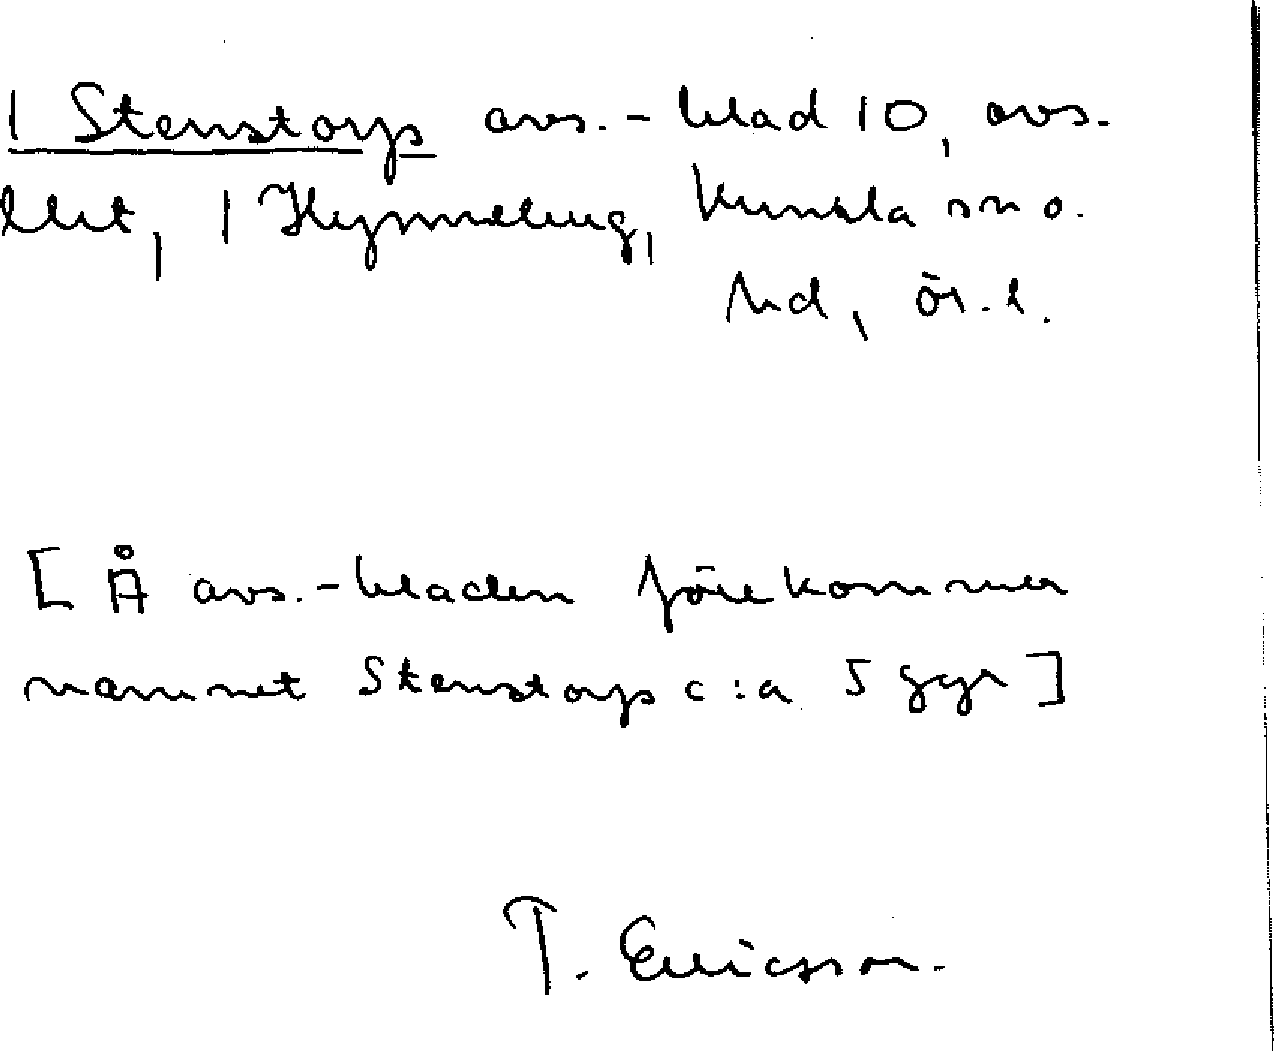 | Stenstorp avs.-blad 10, avs.
blit, | Hymmeberg, Kumla sn o.
hd, Ör. l.
[Å avs.-bladen förekommer
namnet Stenstorp c:a 5 ggr]
T. Ericsson.